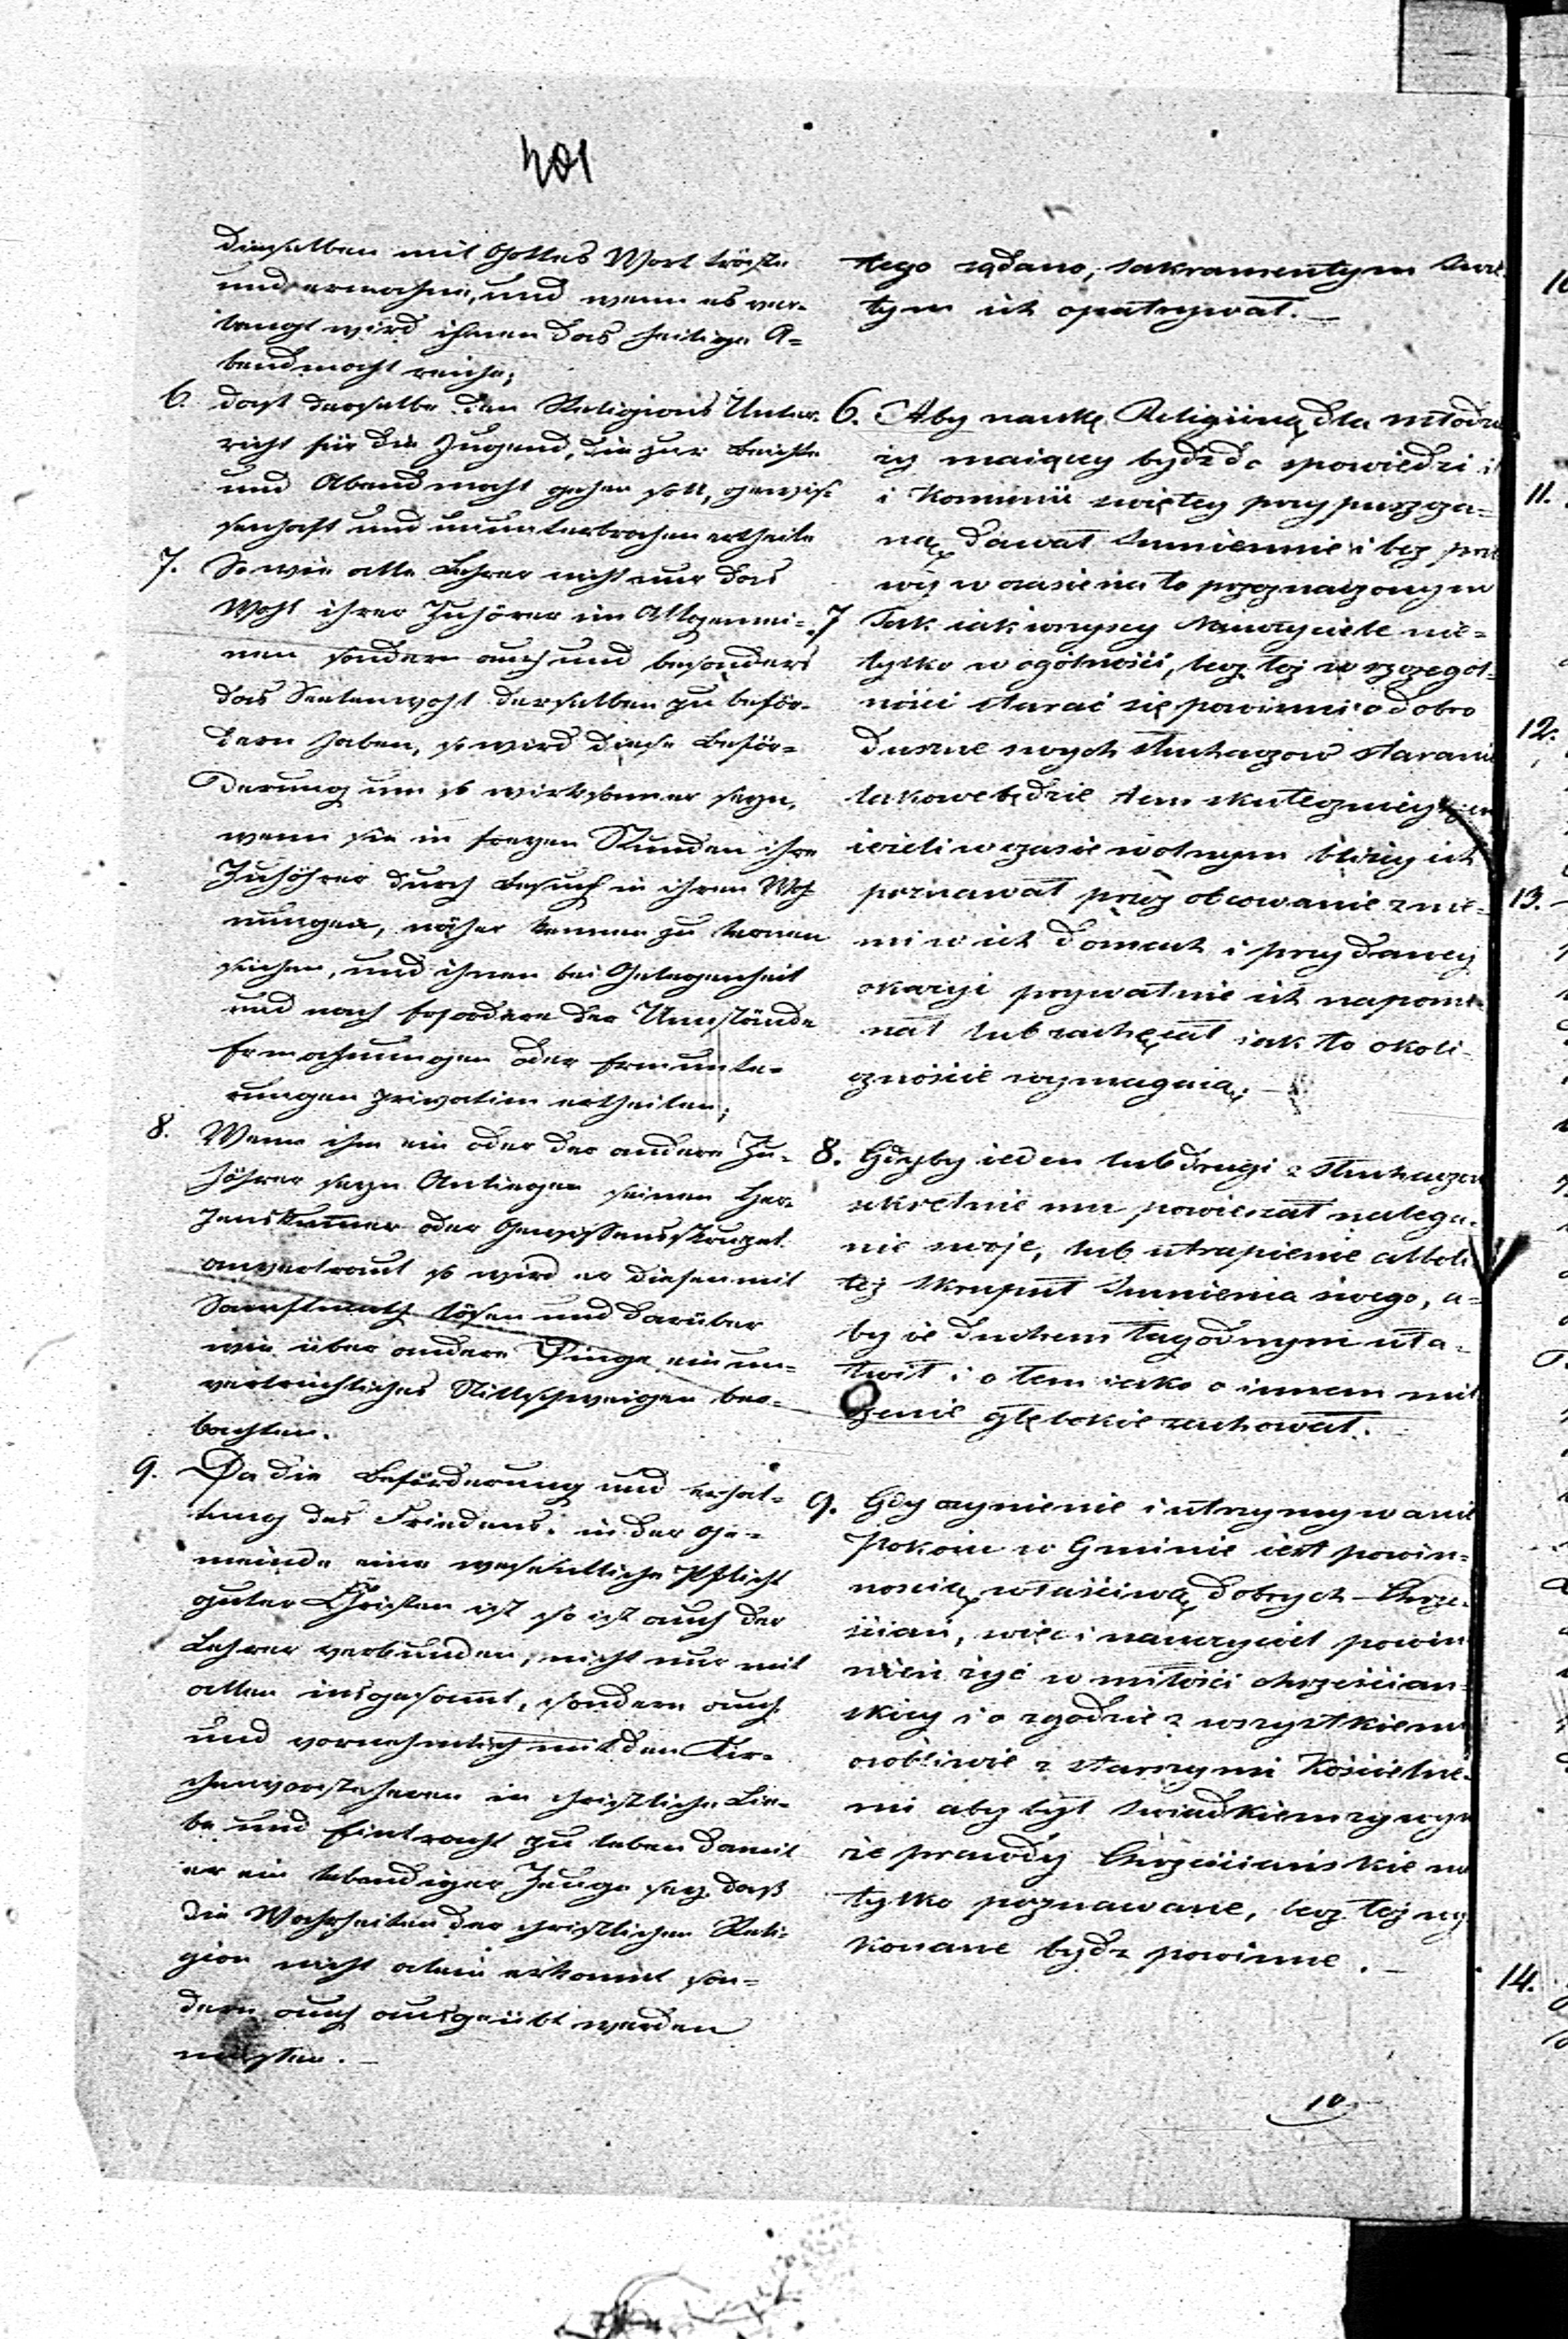 401
denselben mit Gottes Wort tröste
und ermahne, und wenn es ver-
langt wird ihnen das heilige A-
bendmahl reiche;
6. daß derselbe den Religions Unter-
richt für die Jugend, die zur Beichte
und Abendmahl gehen soll, gewis-
senhaft und ununterbrochen ertheile
7. So wie alle Lehrer nicht nur das
Wohl ihrer Zuhörer im Allgemei-
nen sondern auch und besonders
das Seelenwohl derselben zu beför-
dern haben, so wird diese Beför-
derung um so wirksamer seyn,
wenn sie in freyen Stunden ihre
Zuhöhrer durch Besuch in ihren Woh-
nungen, näher kennen zu lernen
suchen, und ihnen bei Gelegenheit
und nach Erfordern der Umstände
Ermahnungen oder Ermunte-
rungen privatim ertheilen;
8. Wenn ihm ein oder der andere Zu-
höhrer seyn Anliegen seinen Her-
zenskummer oder Gewissensskrupel
anvertraut so wird er diesen mit
Sanftmuth lösen und darüber
wie über andere Dinge ein un-
verbrüchliches Stillschweigen beo-
bachten.
9. Da die Beförderung und erhal-
tung des Friedens in der Ge-
meinde eine wesentliche Pflicht
guter Christen ist so ist auch der
Lehrer verbunden, nicht nur mit
allen insgesamt, sondern auch
und vornehmlich mit den Kir-
chenvorstehern in christliche Lie-
be und Eintracht zu leben damit
er ein lebendiger Zeuge sey, daß
die Wahrheiten der christlichen Reli-
gion nicht allein erkannt son-
dern auch ausgeübt werden
müsten.
tego rądano, sakramentym Swię
tym ich opatrywał.
6. Aby naukę Religiiną dla młodzie
ży maiący bydź do spowiedzi i
i Komunii swiętey przypuszcza-
ną, dawał sumiennie i bez prze
wy w czasie na to przeznaczonym
7 Tak iak wszyscy Nauczyciele nie-
tylko w ogólności, lecz też w szczegól-
ności starać się powinni o dobro
duszne swych słuchaczow staranie
takowe będzie tem skutecznieysze
ieżeli w czasie wolnym bliżey ich
poznawał przez obcowanie z nie-
mi w ich domach i przy daney
okazyi prywatnie ich napomi
nał lub zachęcał iak to okoli-
czności wymagaią.
8. Gdyby ieden lub drugi z słuchaczow
sekretnie mu powierzał nalega-
nie swoje, lub utrapienie alboli
też skrupuł sumienia swego, a-
by ie duchem łagodnym uła-
twił i o tem iako o innem mil
czenie głębokie zachował.
9. Gdy czynienie i utrzymywanie
pokoiu w Gminie iest powin-
nością właściwą dobrych Chrze-
ścian, więc i nauczyciel powin
nien żyć w miłości chrześcian-
skiey i o zgodzie z wszystkiemi
osobliwie z starszymi Kościelne-
mi aby był świadkiem żywym
że prawdy Chrześciańskie nie
tylko poznawane, lecz też wy
konane bydź powinne.
10
10
11.
12.
13.
14.